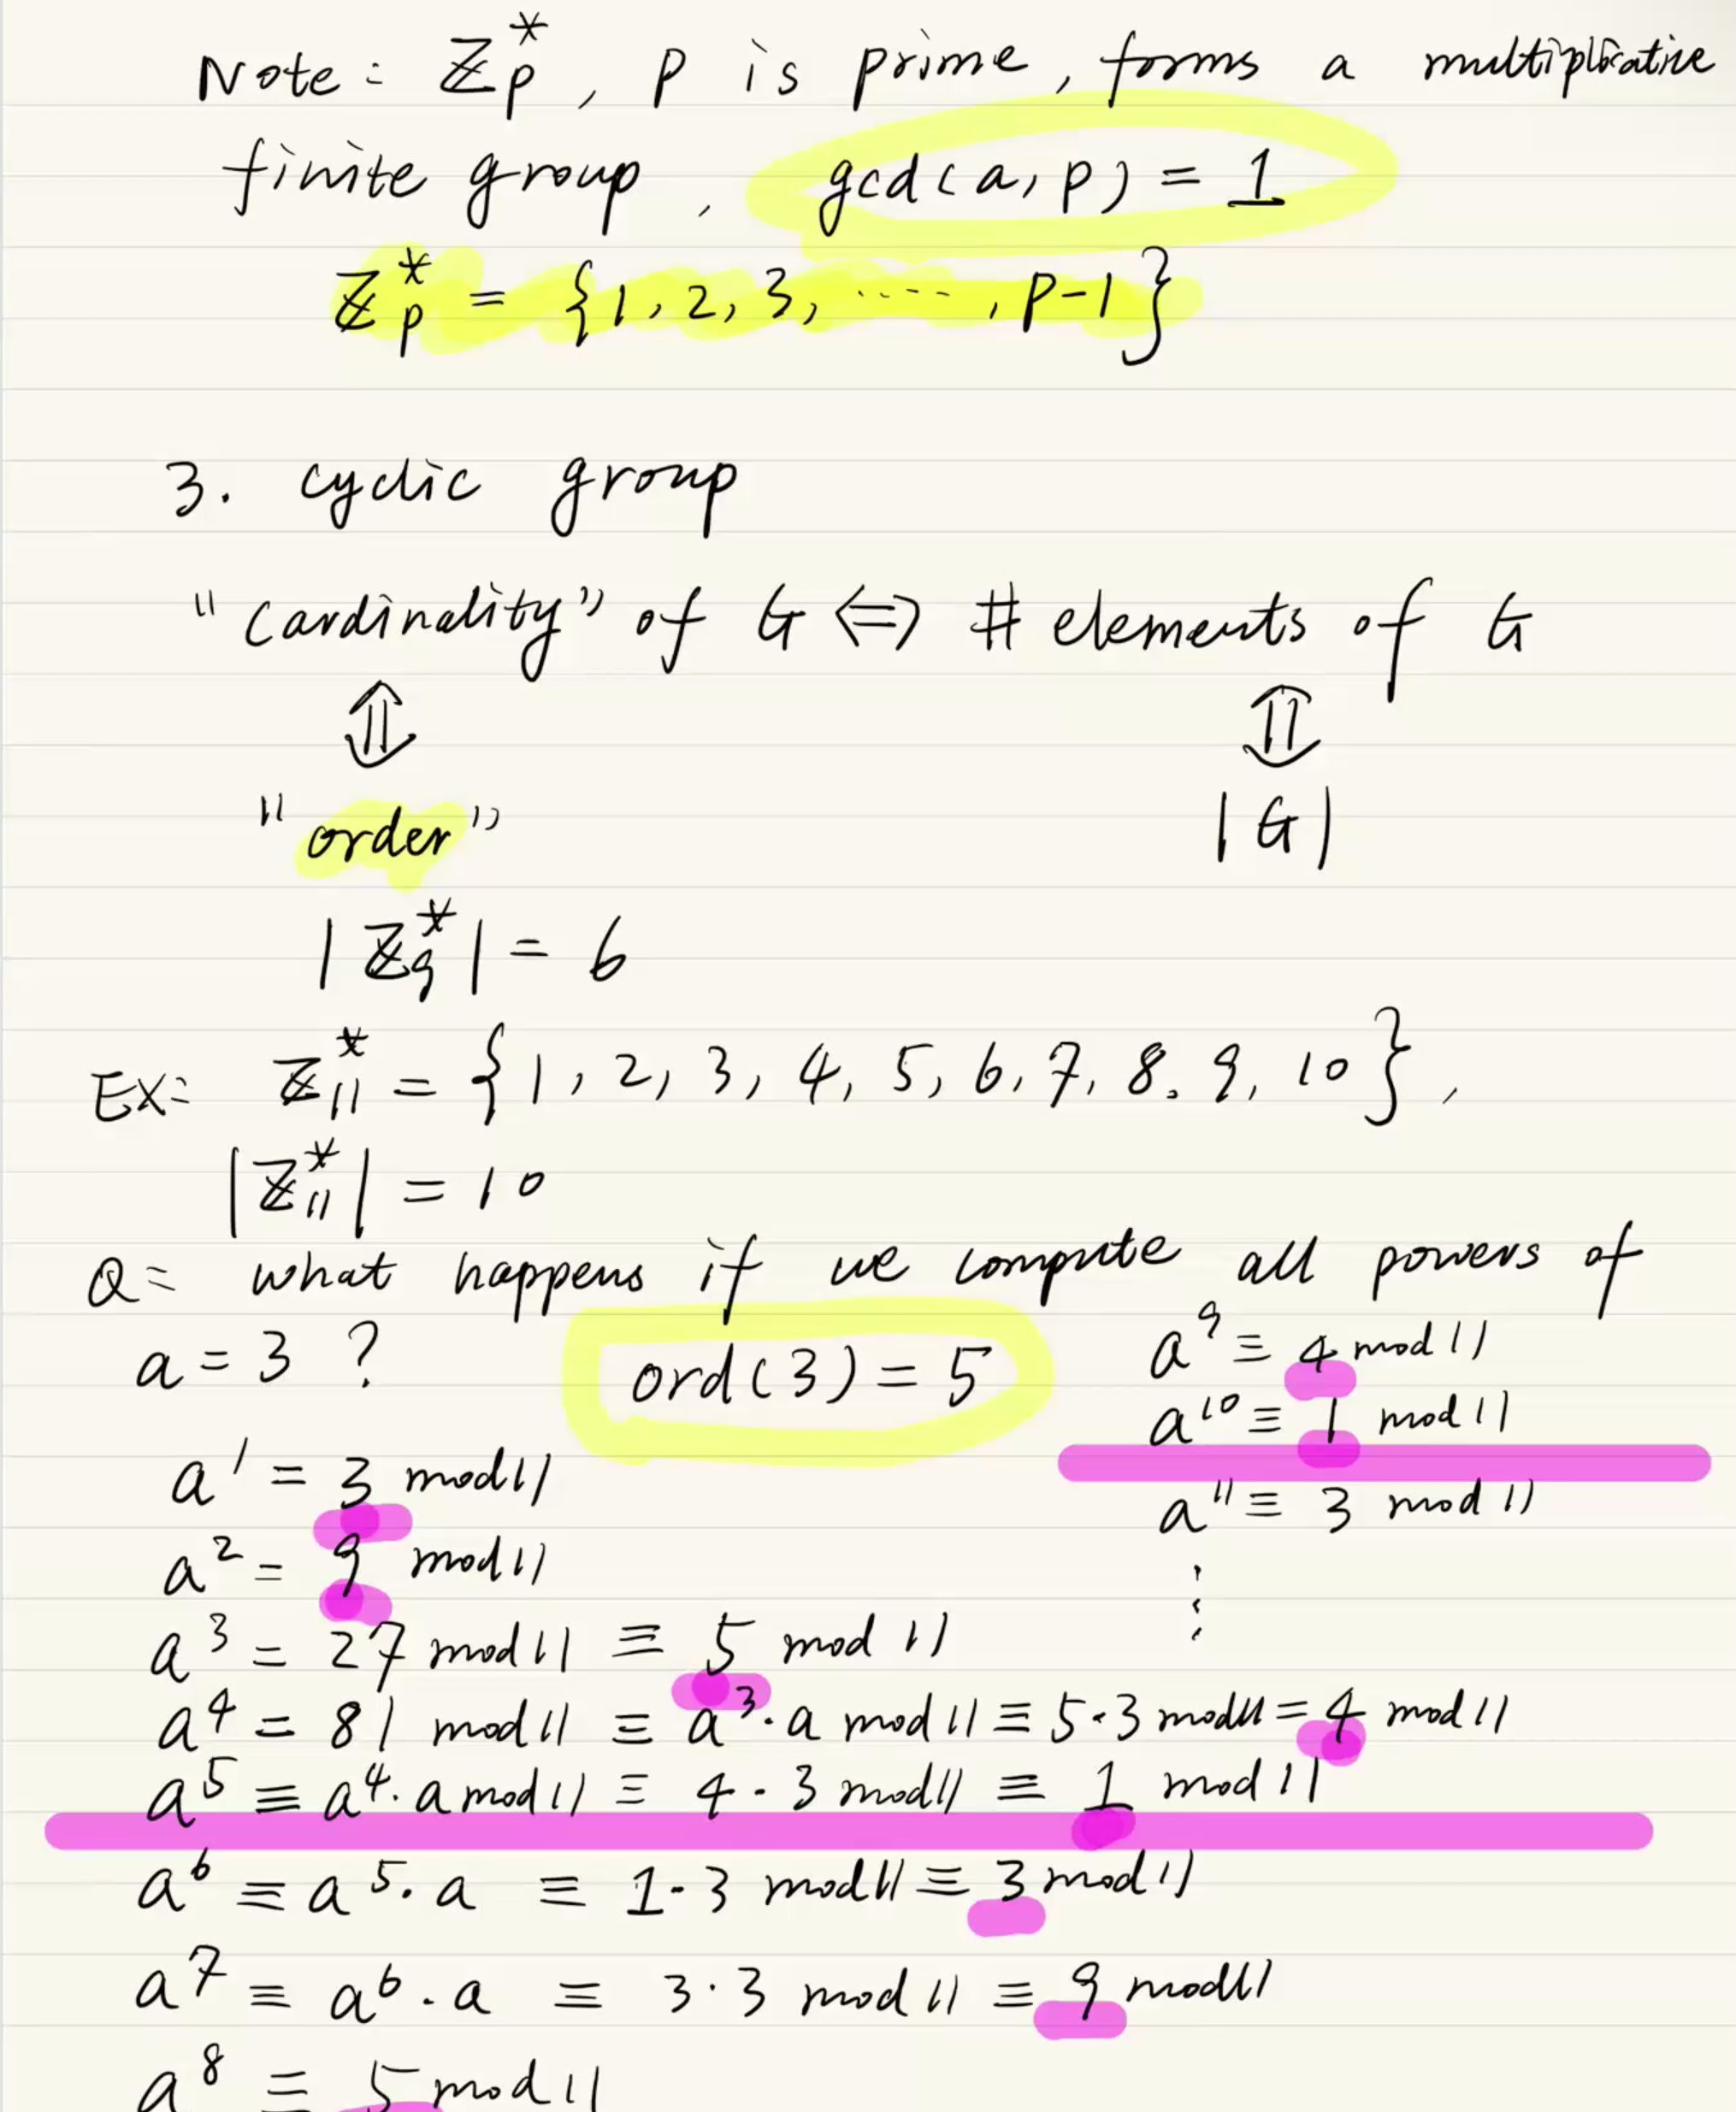 Note: ℤ*ₚ, p is prime, forms a multiplicative
finite group, gcd(a, p) = 1
ℤ*ₚ = {1, 2, 3, ....., p-1}
3. cyclic group
"Cardinality" of G ⇔ # elements of G
⇕ ⇕
"order" |G|
|ℤ*₉| = 6
EX: ℤ*₁₁ = {1, 2, 3, 4, 5, 6, 7, 8, 9, 10},
|ℤ*₁₁| = 10
Q: what happens if we compute all powers of
a = 3 ? ord(3) = 5
a¹ = 3 mod 11
a² = 9 mod 11
a³ = 27 mod 11 ≡ 5 mod 11
a⁴ = 81 mod 11 ≡ a³·a mod 11 ≡ 5·3 mod 11 = 4 mod 11
a⁵ ≡ a⁴·a mod 11 ≡ 4·3 mod 11 ≡ 1 mod 11
a⁶ ≡ a⁵·a ≡ 1·3 mod 11 ≡ 3 mod 11
a⁷ ≡ a⁶·a ≡ 3·3 mod 11 ≡ 9 mod 11
a⁸ ≡ 5 mod 11
a⁹ ≡ 4 mod 11
a¹⁰ ≡ 1 mod 11
a¹¹ ≡ 3 mod 11
⋮